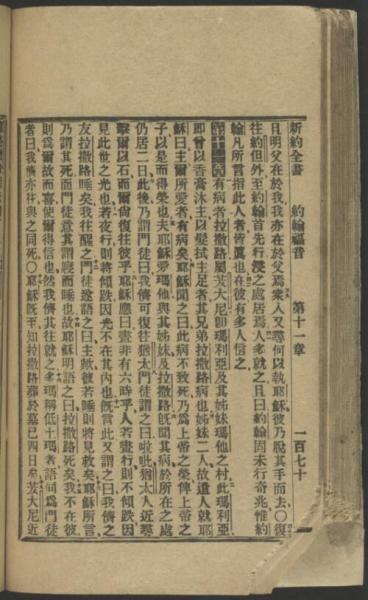 新約全書　約翰福音　第十一章　一百七十
且明父在於我我亦在於父焉衆人又尋何以執耶穌彼乃脫其手而去○復
往約但外至約翰首先行浸之處居焉人多就之且曰約翰固未行奇兆惟約
翰凡所言指此人者皆眞也在彼有多人信之
第十一章有病者拉撒路屬茇大尼卽瑪利亞及其姊妹瑪他之村此瑪利亞
卽曾以香膏沐主以髮拭主足者其兄弟拉撒路病也姊妹二人故遣人就耶
穌曰主爾所愛者有病矣耶穌聞之曰此病不致死乃爲上帝之榮俾上帝之
子以是而得榮也夫耶穌愛瑪他與其姊妹及拉撒路旣聞其病於所在之處
仍居二日此後乃謂門徒曰我儕可復往猶太門徒謂之曰啦吡猶太人近尋
擊爾以石而爾尙復往彼乎耶穌應曰晝非有六時乎人若晝行則不傾跌因
見此世之光也若夜行則將傾跌因光不在其內也旣言此又謂之曰我儕之
友拉撒路睡矣我往醒之門徒遂語之曰主歟彼若睡則將見救矣耶穌所言
乃謂其死而門徒意其謂寢而睡也故耶穌明語之曰拉撒路死矣我不在彼
則爲爾故而喜使爾得信也然我儕其往就之多瑪稱低十瑪者語同爲門徒
者曰我儕亦往與之同死○耶穌旣至知拉撒路葬於墓已四日矣茇大尼近